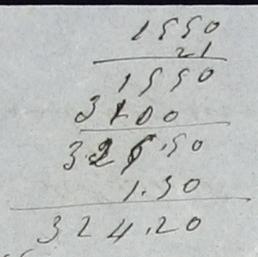 1550
21
1550
3100
325.50
1.30
324.20